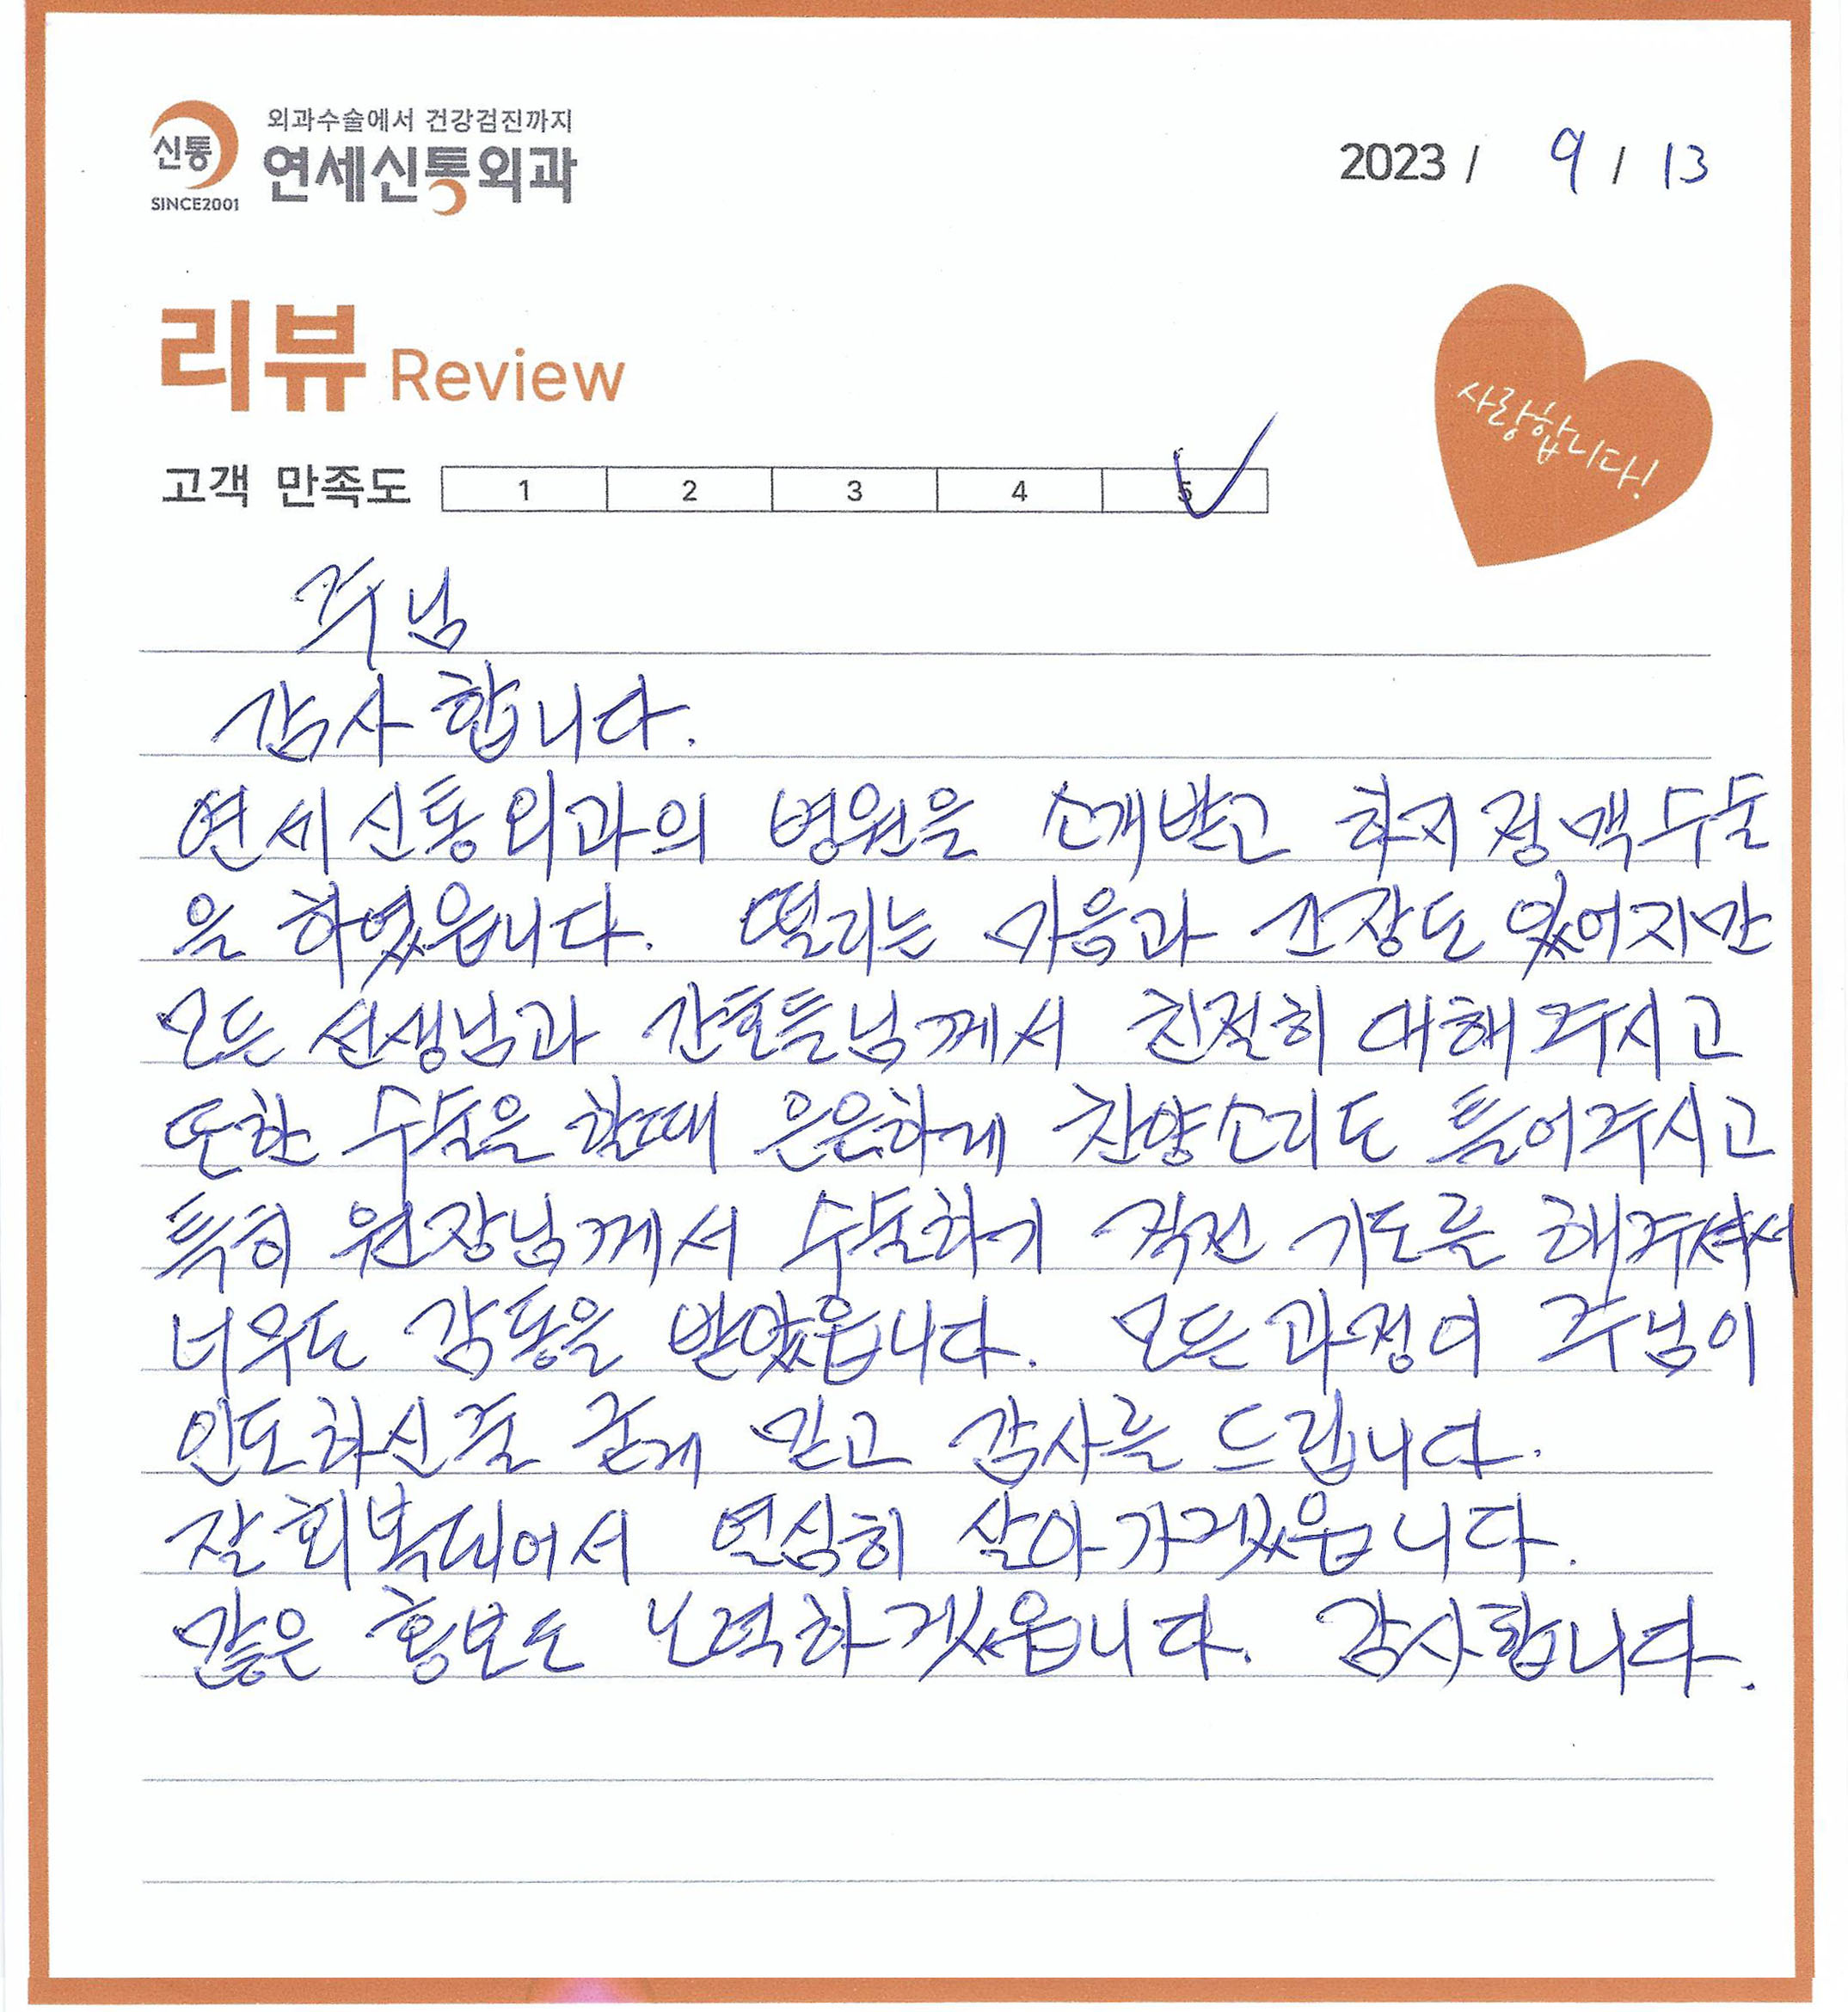 외과수술에서 건강검진까지
신통 연세신통외과
SINCE2001
2023 / 9 / 13
리뷰 Review
사랑합니다!
고객 만족도 1 2 3 4 5
주님
감사 합니다.
연세신통외과의 병원을 소개받고 하지정맥수술
을 하였읍니다. 떨리는 마음과 긴장도 있어지만
모든 선생님과 간호들님께서 친절히 대해주시고
또한 수술을 할때 은은하게 찬양소리도 틀어주시고
특히 원장님께서 수술하기 직전 기도를 해주셔서
너무도 감동을 받았읍니다. 모든과정이 주님이
인도하신줄 굳게 믿고 감사를 드립니다.
잘회복되어서 열심히 살아가겠읍니다.
많은 홍보도 노력하겠읍니다. 감사합니다.